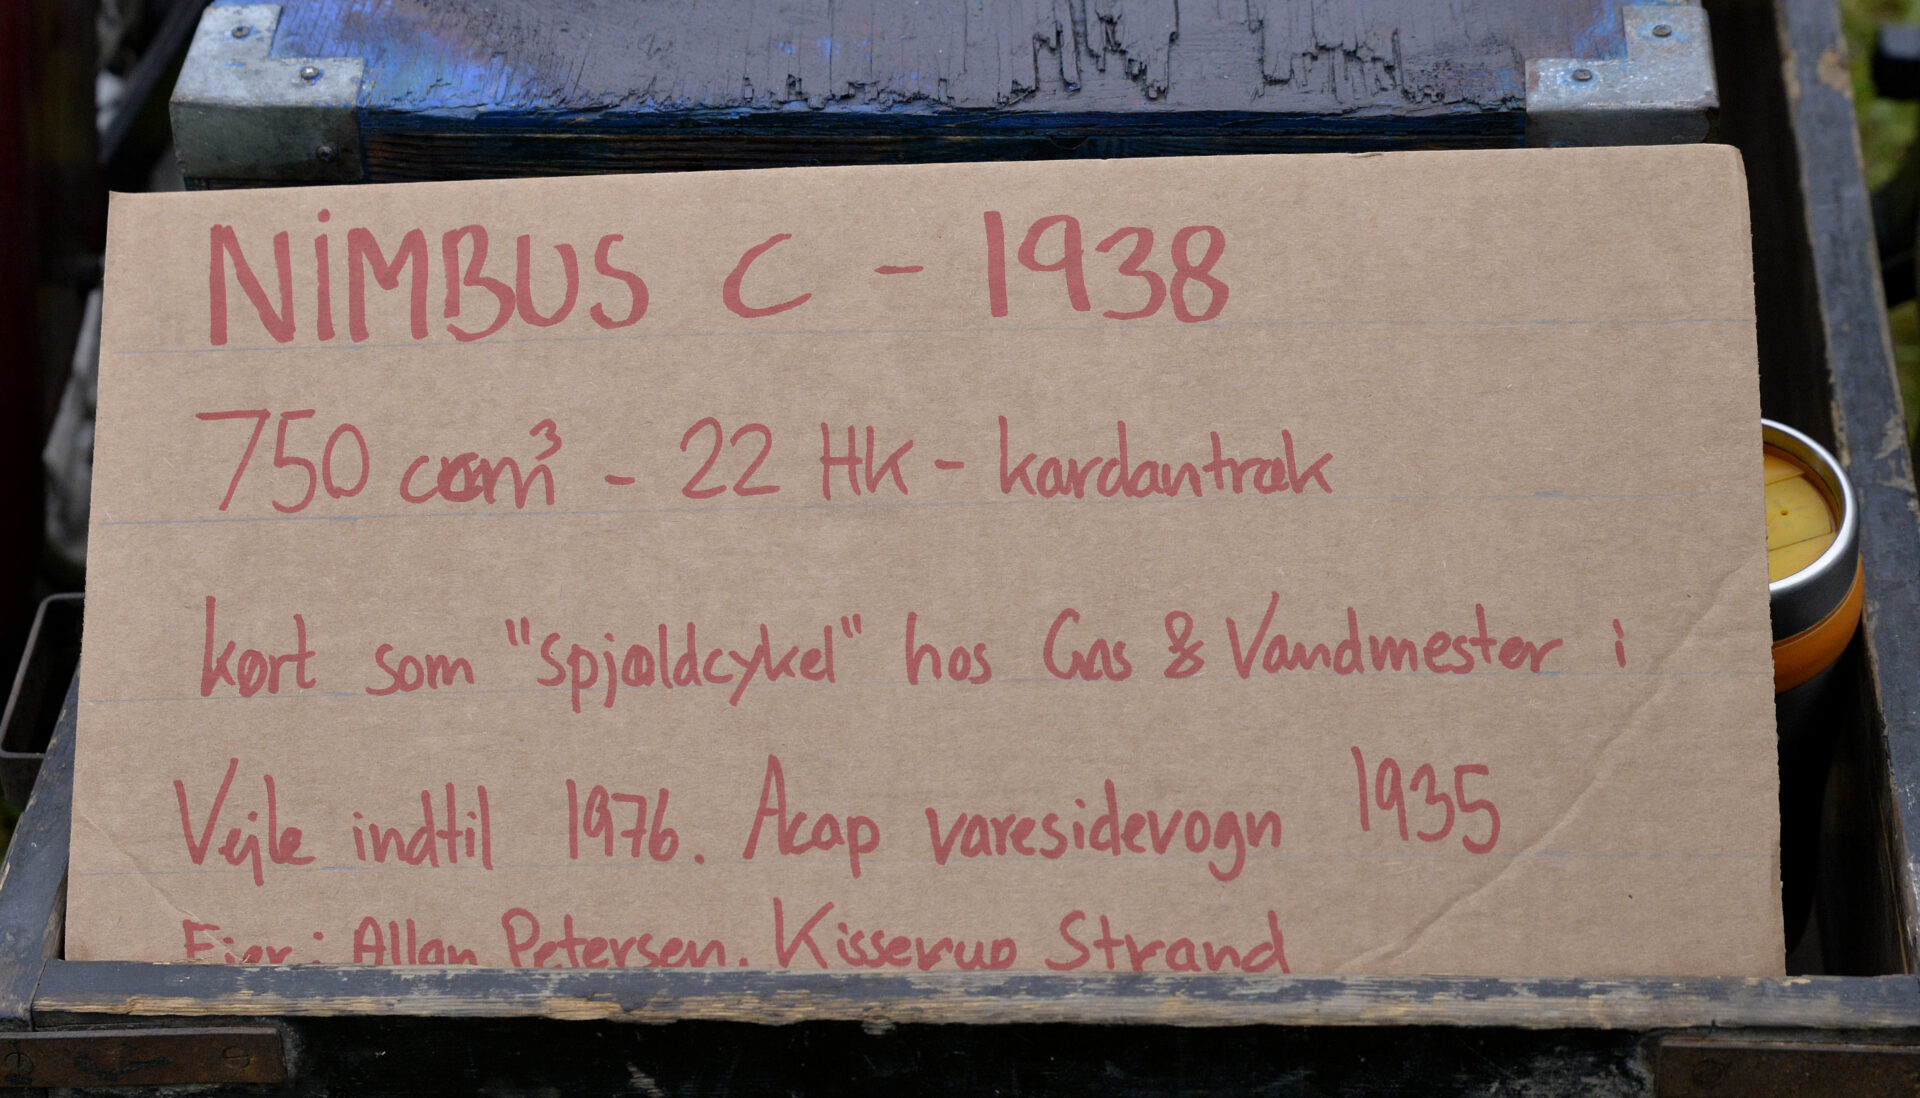 NIMBUS C - 1938
750 ccm³ - 22 HK - kardantræk
kørt som "spjældcykel" hos Gas & Vandmester i
Vejle indtil 1976. Acap varesidevogn 1935
Ejer: Allan Petersen. Kisserup Strand